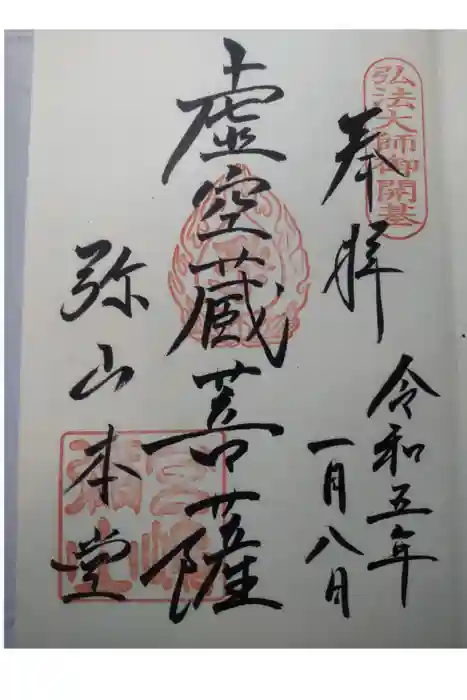 弘法大師御開基
奉拝
令和五年
一月八日
虚空蔵菩薩
弥山本堂